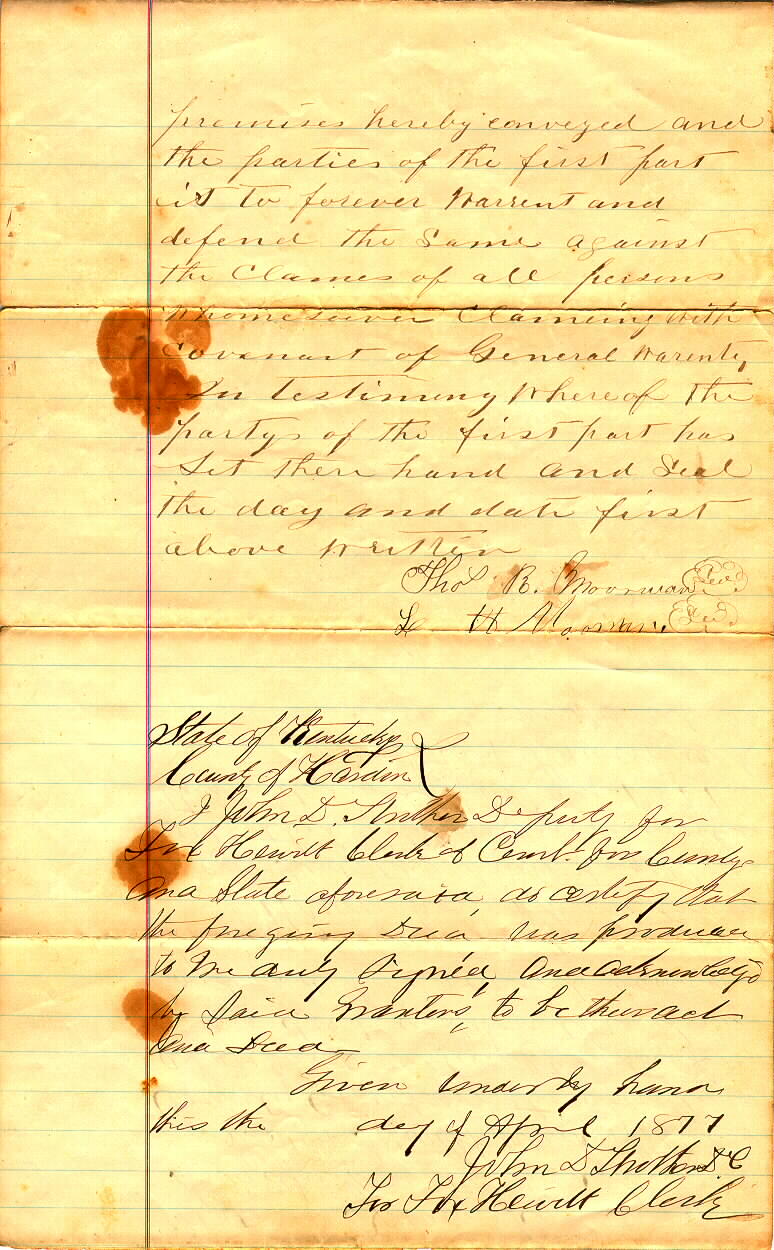 premises hereby conveyed and
the parties of the first part
is to forever Warrent and
defend the Same against
the Clames of all persons
Whomesoever Clameing With
Covenant of General Warenty
In testimony Whereof the
partys of the first part has
Set there hand and Seal
the day and date first
above Written
Thos R. Moorman Seal
L H Moorman Seal
State of Kentucky
County of Hardin
I John D. Deputy for
Fox Hewitt Clerk of Court for County
and State aforesaid do certify that
the foregoing Deed was produced
to me duly Signed and acknowledged
by Said Grantors to be their act
and Deed
Given under my hand
this the day of April 1877
John D DC
For Fox Hewitt Clerk